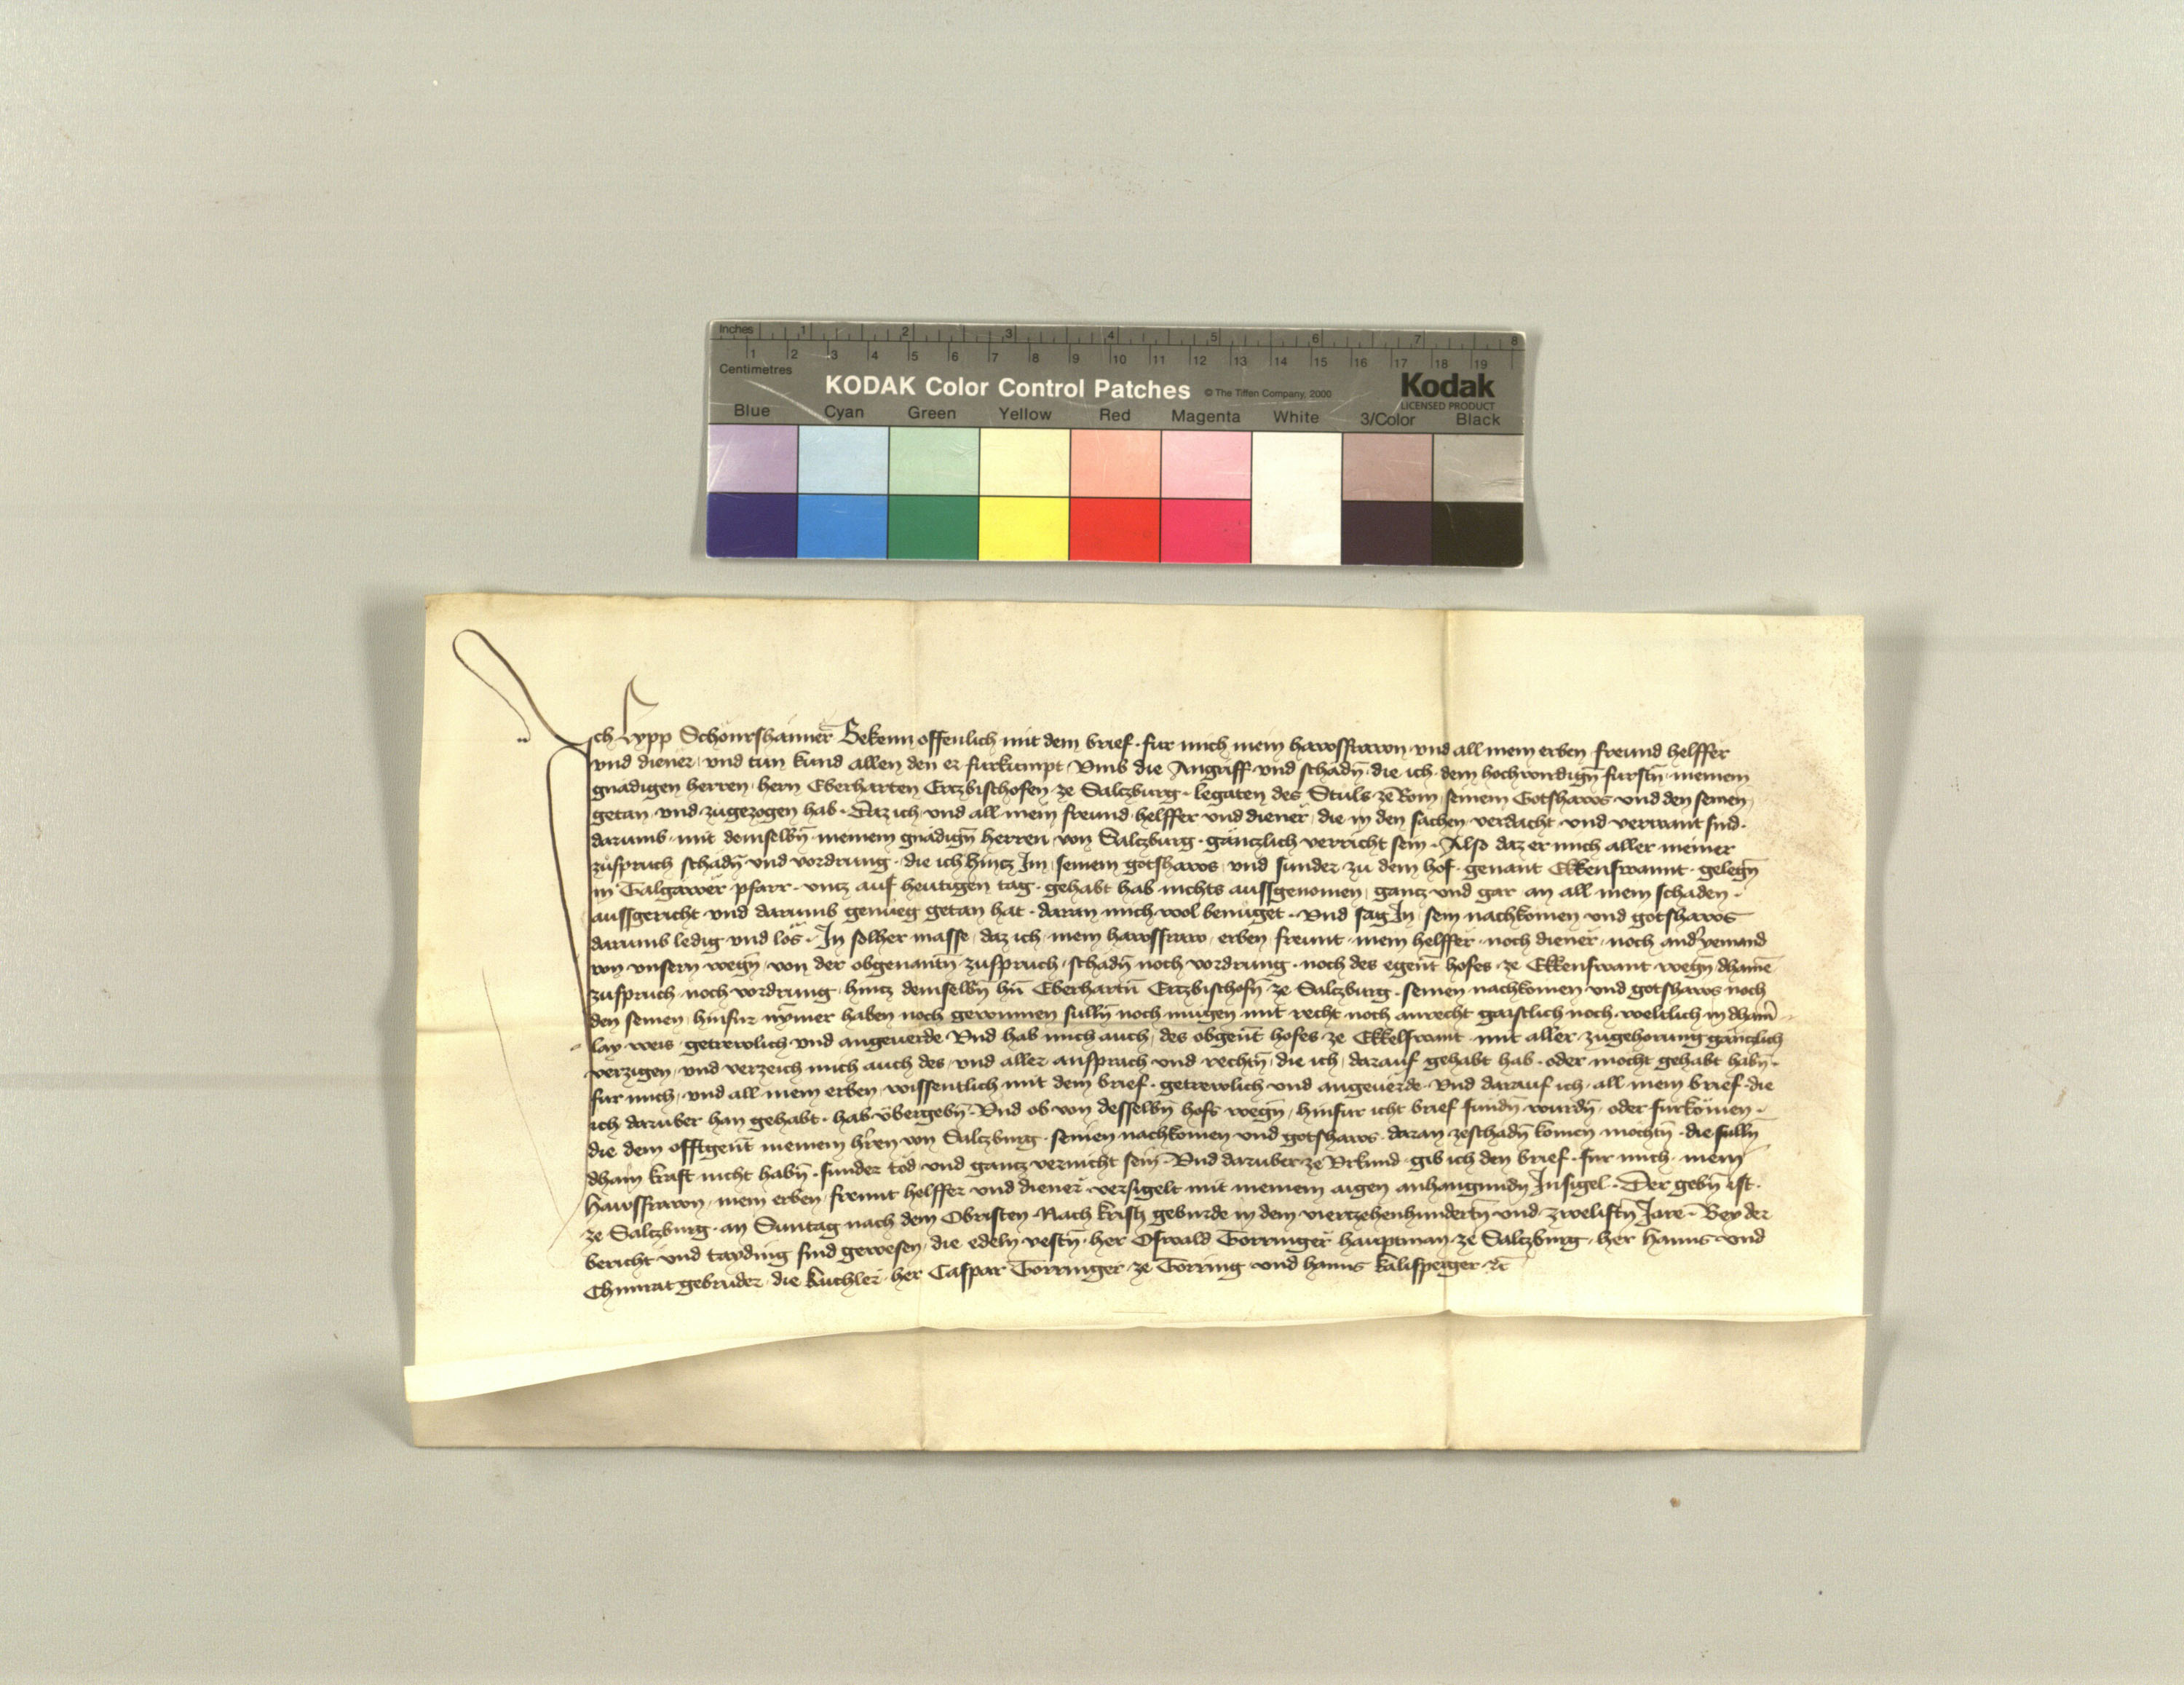 Inches 1 2 3 4 5 6 7 8
1 2 3 4 5 6 7 8 9 10 11 12 13 14 15 16 17 18 19
Centimetres
KODAK Color Control Patches © The Tiffen Company, 2000 Kodak
LICENSED PRODUCT
Blue Cyan Green Yellow Red Magenta White 3/Color Black
Ich Lypp Schönrshaimer Bekenn offenlich mit dem brief · fur mich mein hawsfrawen und all mein erben freund helffer
und diener · und tun kund allen den er furkumpt · Vmb die Angriff und schadn̄ · die ich · dem hochwirdign̄ furstn̄ · meinem
gnadigen herren · hern Eberharten Ertzbischofen ze Saltzburg · legaten des Stuls ze Rom seinem Gotshaws · und den seinen
getan und zugezogen hab · Daz ich und all mein freund helffer und diener · die in den sachen verdacht und verwant sind ·
darumb · mit demselbn̄ meinem gnadign̄ herren von Saltzburg · gantzlich verricht sein · Also daz er mich aller meiner
zuspruch schadn̄ und vordrung · die ich hintz Im seinem gotshaws und sunder zu dem hof · genant Ekkenswannt · gelegn̄
in Talgawer pfarr · untz auf heutigen tag · gehabt hab nichts aussgenomen gantz und gar an all mein schaden ·
aussgericht und darumb genueg getan hat · daran mich wol benüget · Und sag In sein nachkomen und gotshaws
darumb ledig und los · In solher masse daz ich mein hawsfraw erben freunt mein helffer noch diener noch and̄ yemand
von unsern wegn̄ von der obgenantn̄ zuspruch schadn̄ noch vordrung · noch des egen̄t hofes ze Ekkenswant wegn̄ dhaine
zuspruch noch vordrung hintz demselbn̄ hn̄ Ebehartn̄ Ertzbischofn̄ ze Saltzburg · seinen nachkomen und gotshaws noch
den seinen hinfur nymer haben noch gewinnen sulln̄ noch mugen mit recht noch anrecht gaistlich noch weltlich in dhain̄
lay weis getrewlich und angeuerde Und hab mich auch des obgen̄t hofes ze Ekkelswant mit aller zugehorung gantzlich
verzigen und verzeich mich auch des und aller ansprach und rechtn̄ die ich darauf gehabt hab · oder mocht gehabt habn̄ ·
fur mich und all mein erben wissentlich mit dem brief · getrewlich und angeuerde · Und darauf ich all mein brief die
ich daruber han gehabt · hab übergebn̄ · Und ob von desselbn̄ hofs wegn̄ hinfur icht brief fundn̄ wurdn̄ oder furkomen ·
die dem offtgen̄t meinem hr̄en von Saltzburg · seinen nachkomen und gotshaws daran zeschadn̄ komen mochtn̄ · die sulln̄
dhain kraft nicht habn̄ · sunder tod und gantz vernicht sein · Und daruber ze Vrkund gib ich den brief · fur mich mein
hawsfrawn mein erben freunt helffer und diener versigelt mit meinem aigen anhangundn̄ Insigel · Der gebn̄ ist ·
ze Saltzburg · an Suntag nach dem Obristen Nach kristz geburde in dem viertzehenhundertn̄ und zwelistn̄ Jare · Bey der
bericht und tayding sind gewesen die edeln vestn̄ her Oswald Torringer hauptman ze Saltzburg · her hanns und
Chunrat gebruder die Kuchler her Caspar Torringer ze Torring und hanns kalisperger ꝛc